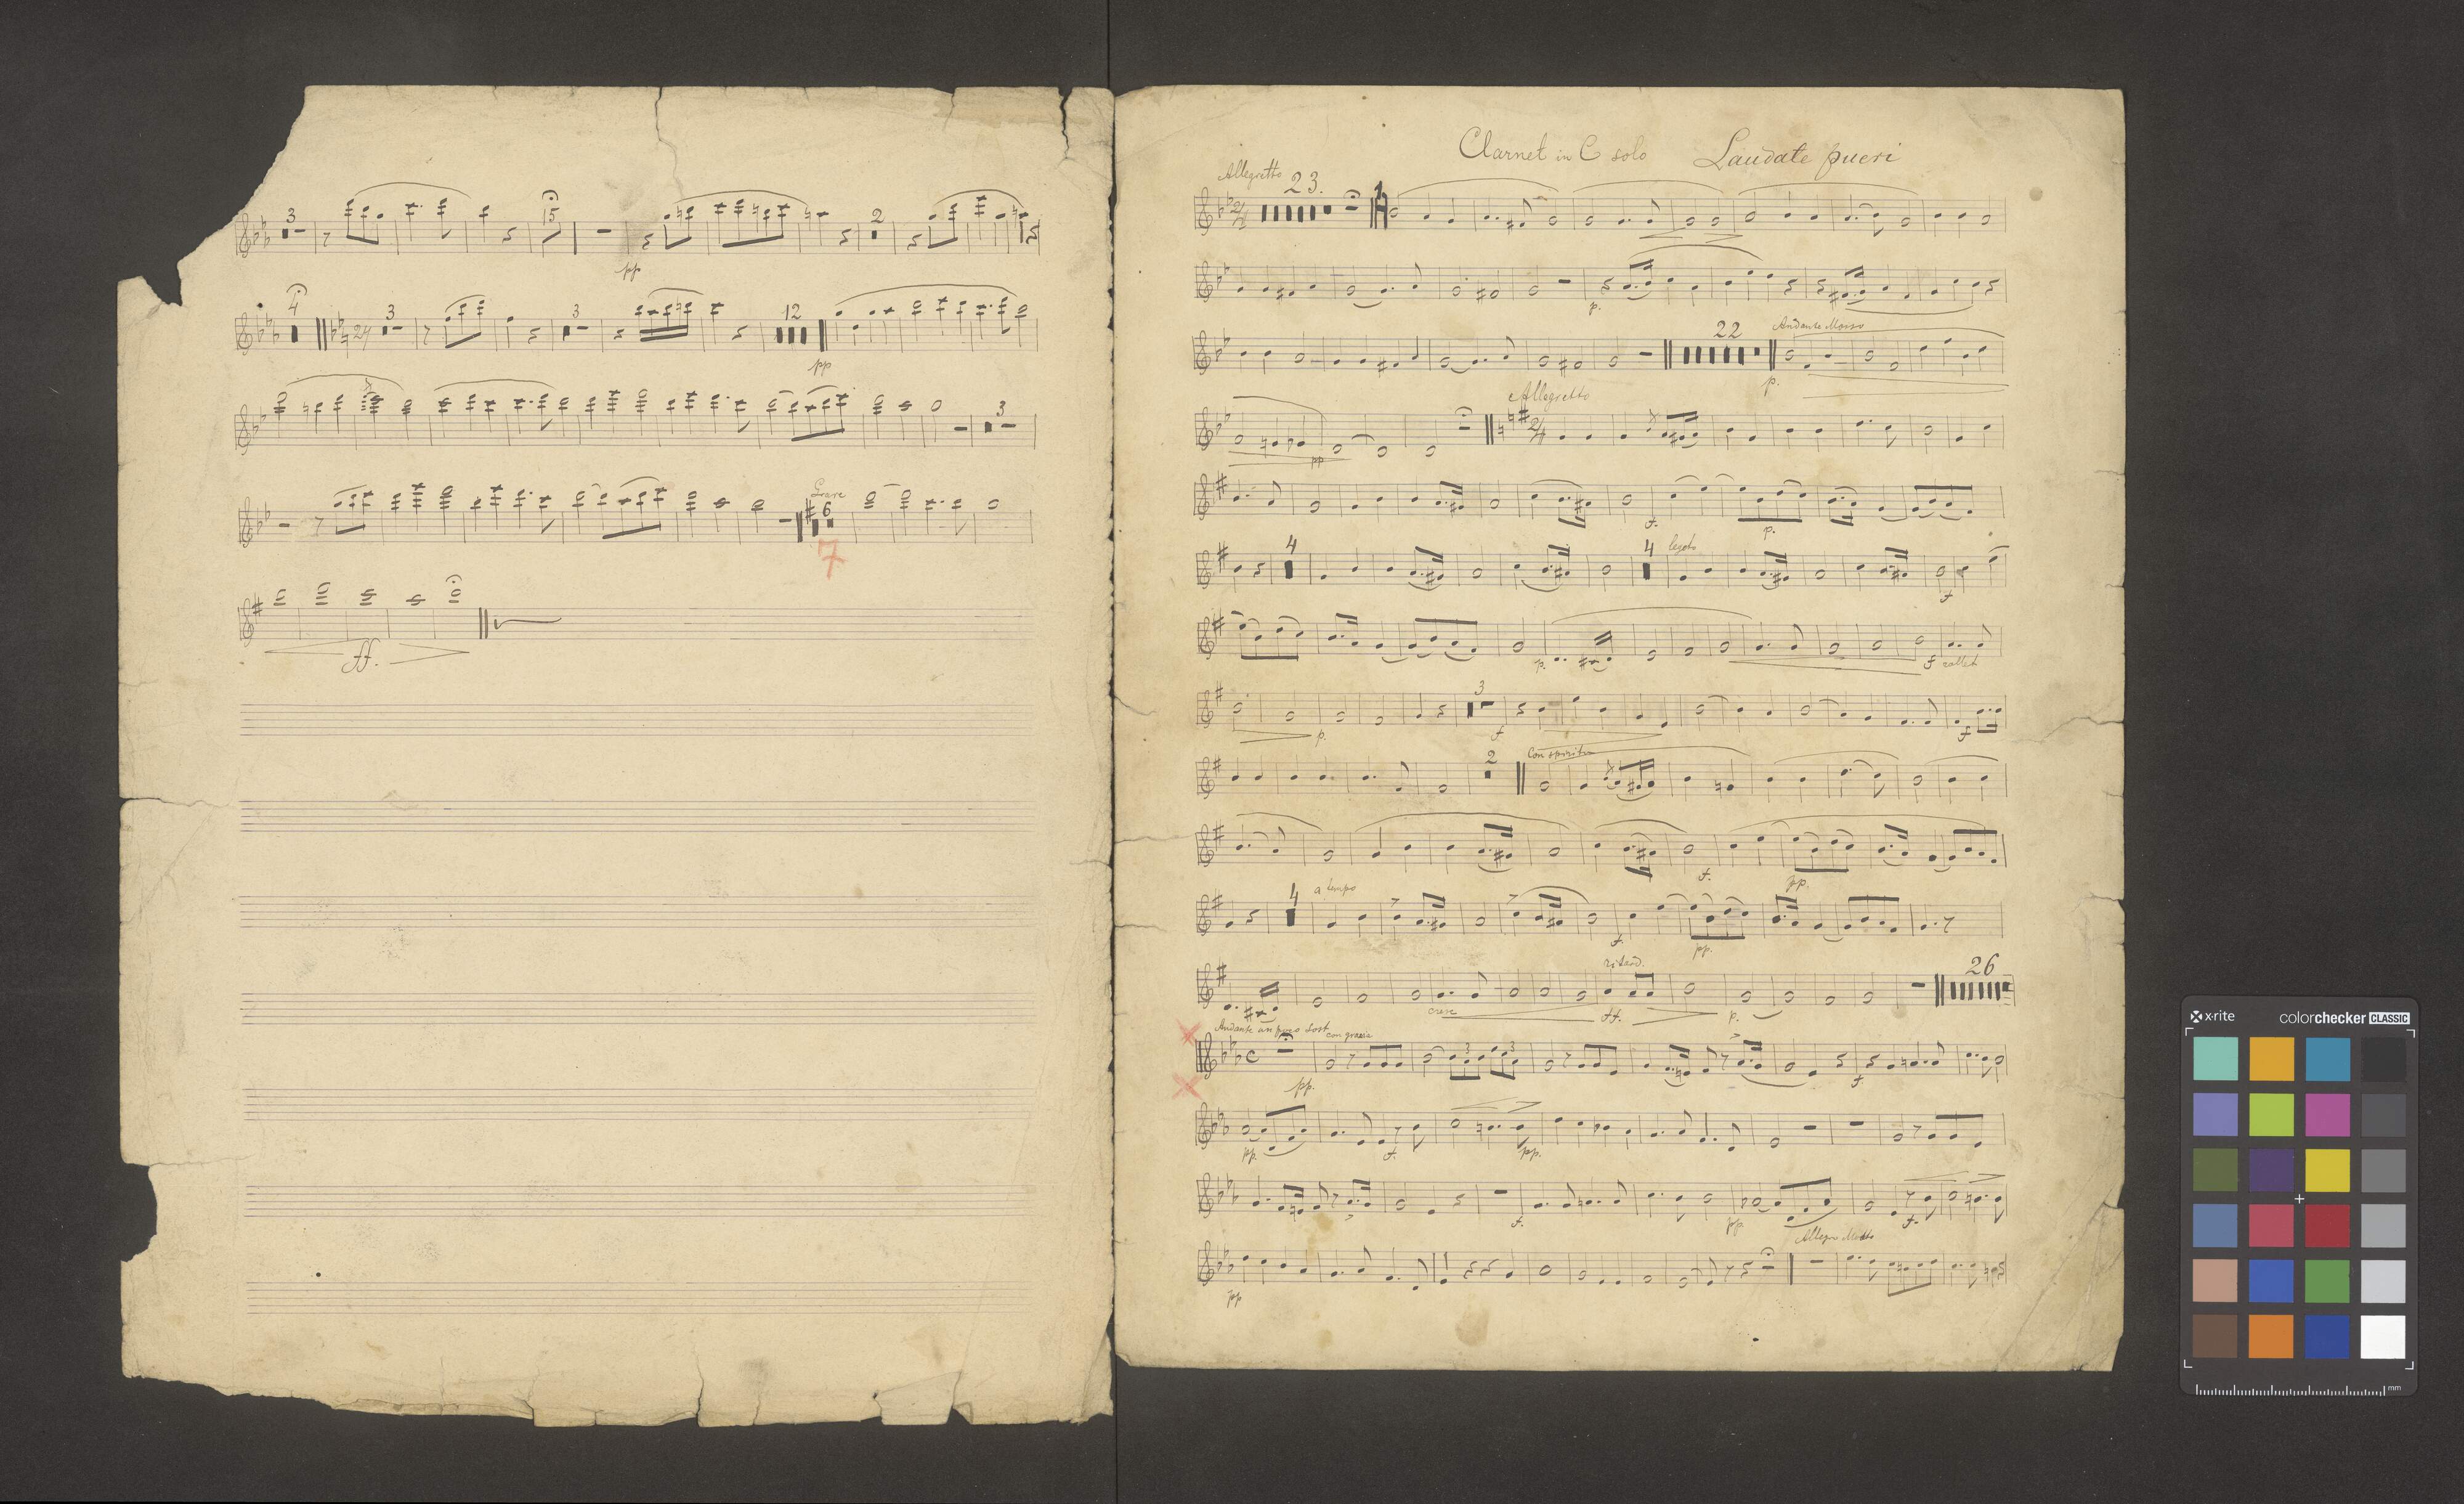 3
15
pp
2
4
24
3
3
12
pp
3
Grave
6
7
ff.
Clarnet in C solo Laudate pueri
Allegretto
23.
2/4
p.
22
Andante Mosso
p.
Allegretto
2/4
pp
f.
p.
4
4 legato
f
p.
f
3
p.
f
f
2
Con spirito
f.
pp.
4
a tempo
f.
pp.
ritard.
26
cresc
ff.
p.
Andante un poco Sost con grazia
C
3
3
pp.
f
pp.
f.
pp.
f.
pp.
f.
pp
x-rite
colorchecker CLASSIC
mm